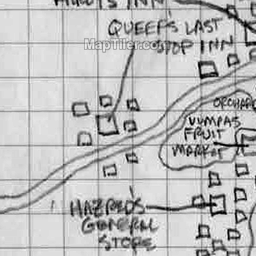 INN
QUEEFS LAST
STOP INN
MapTiler.com
ORCHARD
VUMPAS
FRUIT
MARKET
HAZRED'S
GENERAL
STORE